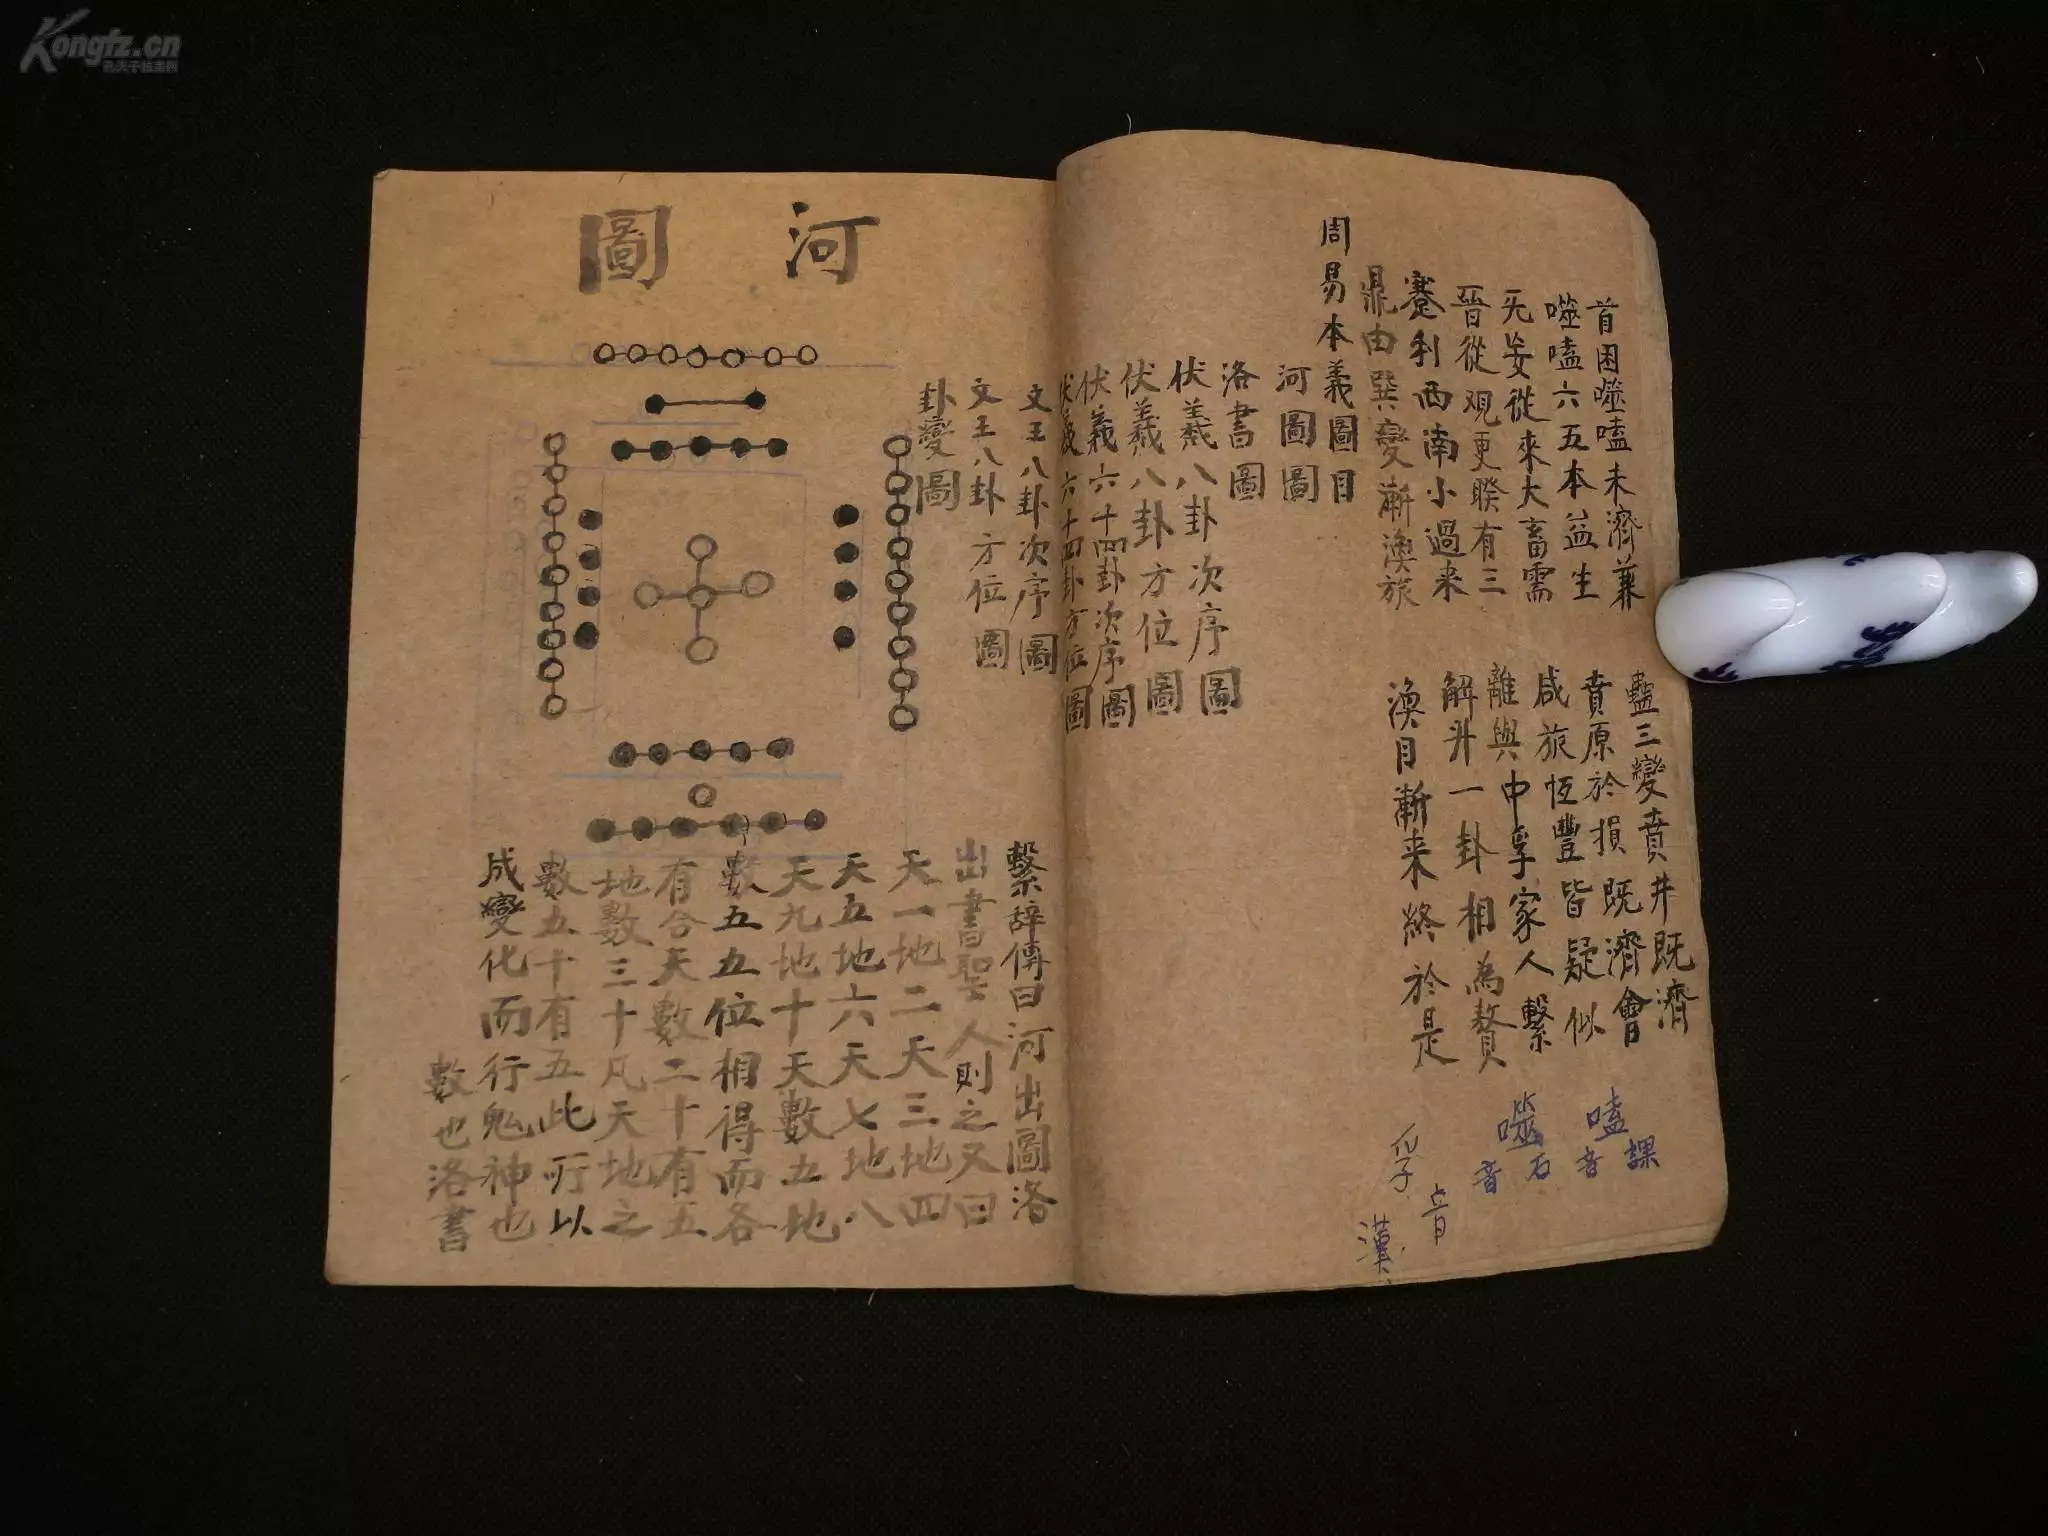 Kongfz.cn
孔夫子旧书网
首困噬嗑未濟兼
噬嗑六五本益生
无妄從來大畜需
晉從观更睽有三
蹇利西南小過来
鼎由巽變漸渙旅
蠱三變賁井既濟
賁原於損既濟會
咸旅恆豐皆疑似
離與中孚家人繫
解升一卦相為贅
渙目漸来終於是
嗑音課
噬音石
孚音
漢
周易本義圖目
河圖圖
洛書圖
伏羲八卦次序圖
伏羲八卦方位圖
伏羲六十四卦次序圖
伏羲六十四卦方位圖
文王八卦次序圖
文王八卦方位圖
卦變圖
河圖
繫辞傳曰河出圖洛
出書聖人則之又曰
天一地二天三地四
天五地六天七地八
天九地十天數五地
數五五位相得而各
有合天數二十有五
地數三十凡天地之
數五十有五此所以
成變化而行鬼神也
數也洛書